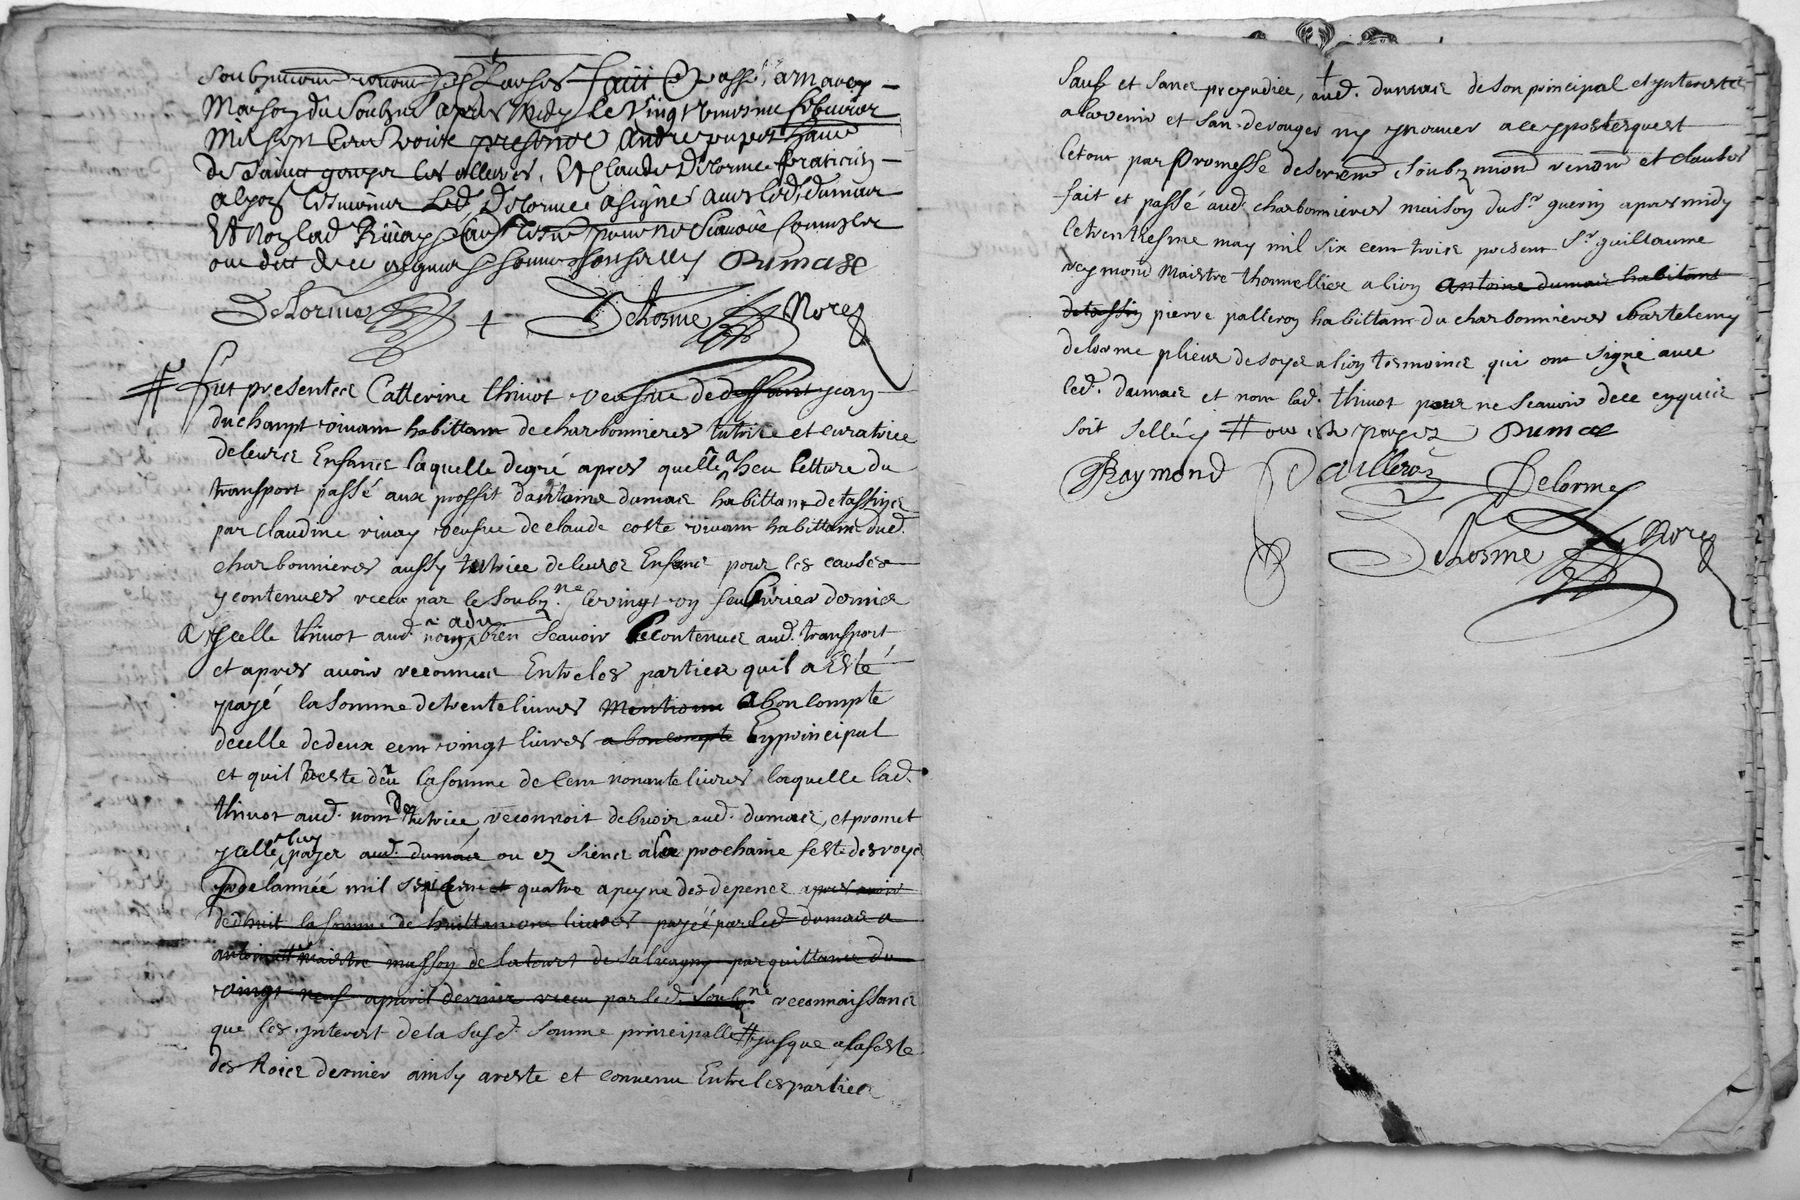 soubzmiōn renōn et clauses fait et passé a marcy
Maison du soubzné apres midy le vingt uniesme febvrier
Mil sept cent trois presents André
de Saint genys les ollieres, et Claude Delorme praticien
a lyon tesmoins Led. Delorme a signé avec led. dumas
Et non lad. Rivay pour ne scavoir
ou dit de ce enquis Dumase
DeLorme + Delhosme Nore
# Fut presentee Catterine thivot veufue de deffunt jean
duchampt vivant habittant de charbonnieres tutrice et curatrice
de leurs Enfans laquelle degré apres quelle a heu letture du
transport passé aux proffit dantoine dumas habittant de tassins
par claudine rivay veufue de claude coste vivant habittant dud.
charbonnieres aussy tutrice de leurs Enfans pour les causes
y contenues receu par le soubz.né le vingt un feubvrier dernier
a ycelle thivot aud. nom, a dit bien scavoir le contenue aud. transport
et apres avoir reconnue Entre les parties quil a Esté
payé la somme de trente livres mentionné a bon compte
decelle de deux cent vingt livres a bon compte En principal
et quil Reste deu la somme de cent nonante livres laquelle lad.
thivot aud. nom de tutrice, reconnoit debvoir aud. dumas, et promet
ycelle luy payer aud. dumas ou ez siens a la prochaine feste des roys
de lanneé mil sept cent et quatre a peyne des depence apres avoir
deduit la somme de huittante une livres payéé par led. dumas a
antoine maistre masson de la tour de salvagny par quittance du
vingt neuf apvril dernier receu par led. soubz né reconnaissance
que les ynterest de la susd. somme principalle # jusque a la feste
des Rois dernier ainsy areste et convenu Entre les parties
Sauf et sans prejudice, aud. dumas de son principal et ynterestz
a ladvenir et sans deroger ny ynnover a ces ypotesquest
le tout par promesse de serment soubzmiōn renōn et clauses
fait et passé aud. charbonnieres maison du sr. guerin apres midy
le trentiesme may mil six cent trois presens Sr. guillaume
reymond Maistre thonnellier a lion antoine dumas habitant
de tassin pierre palleron habittant du charbonnieres Bartelemy
delorme plieur de soye a lion tesmoins qui ont signé avec
led. dumas et non lad. thivot pour ne scavoir de ce enquise
soit sellé # ont esté payez Dumase
Raymond Pailleron Delorme
Delhosme Nore